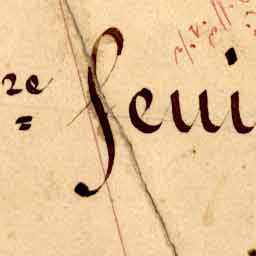 re feui